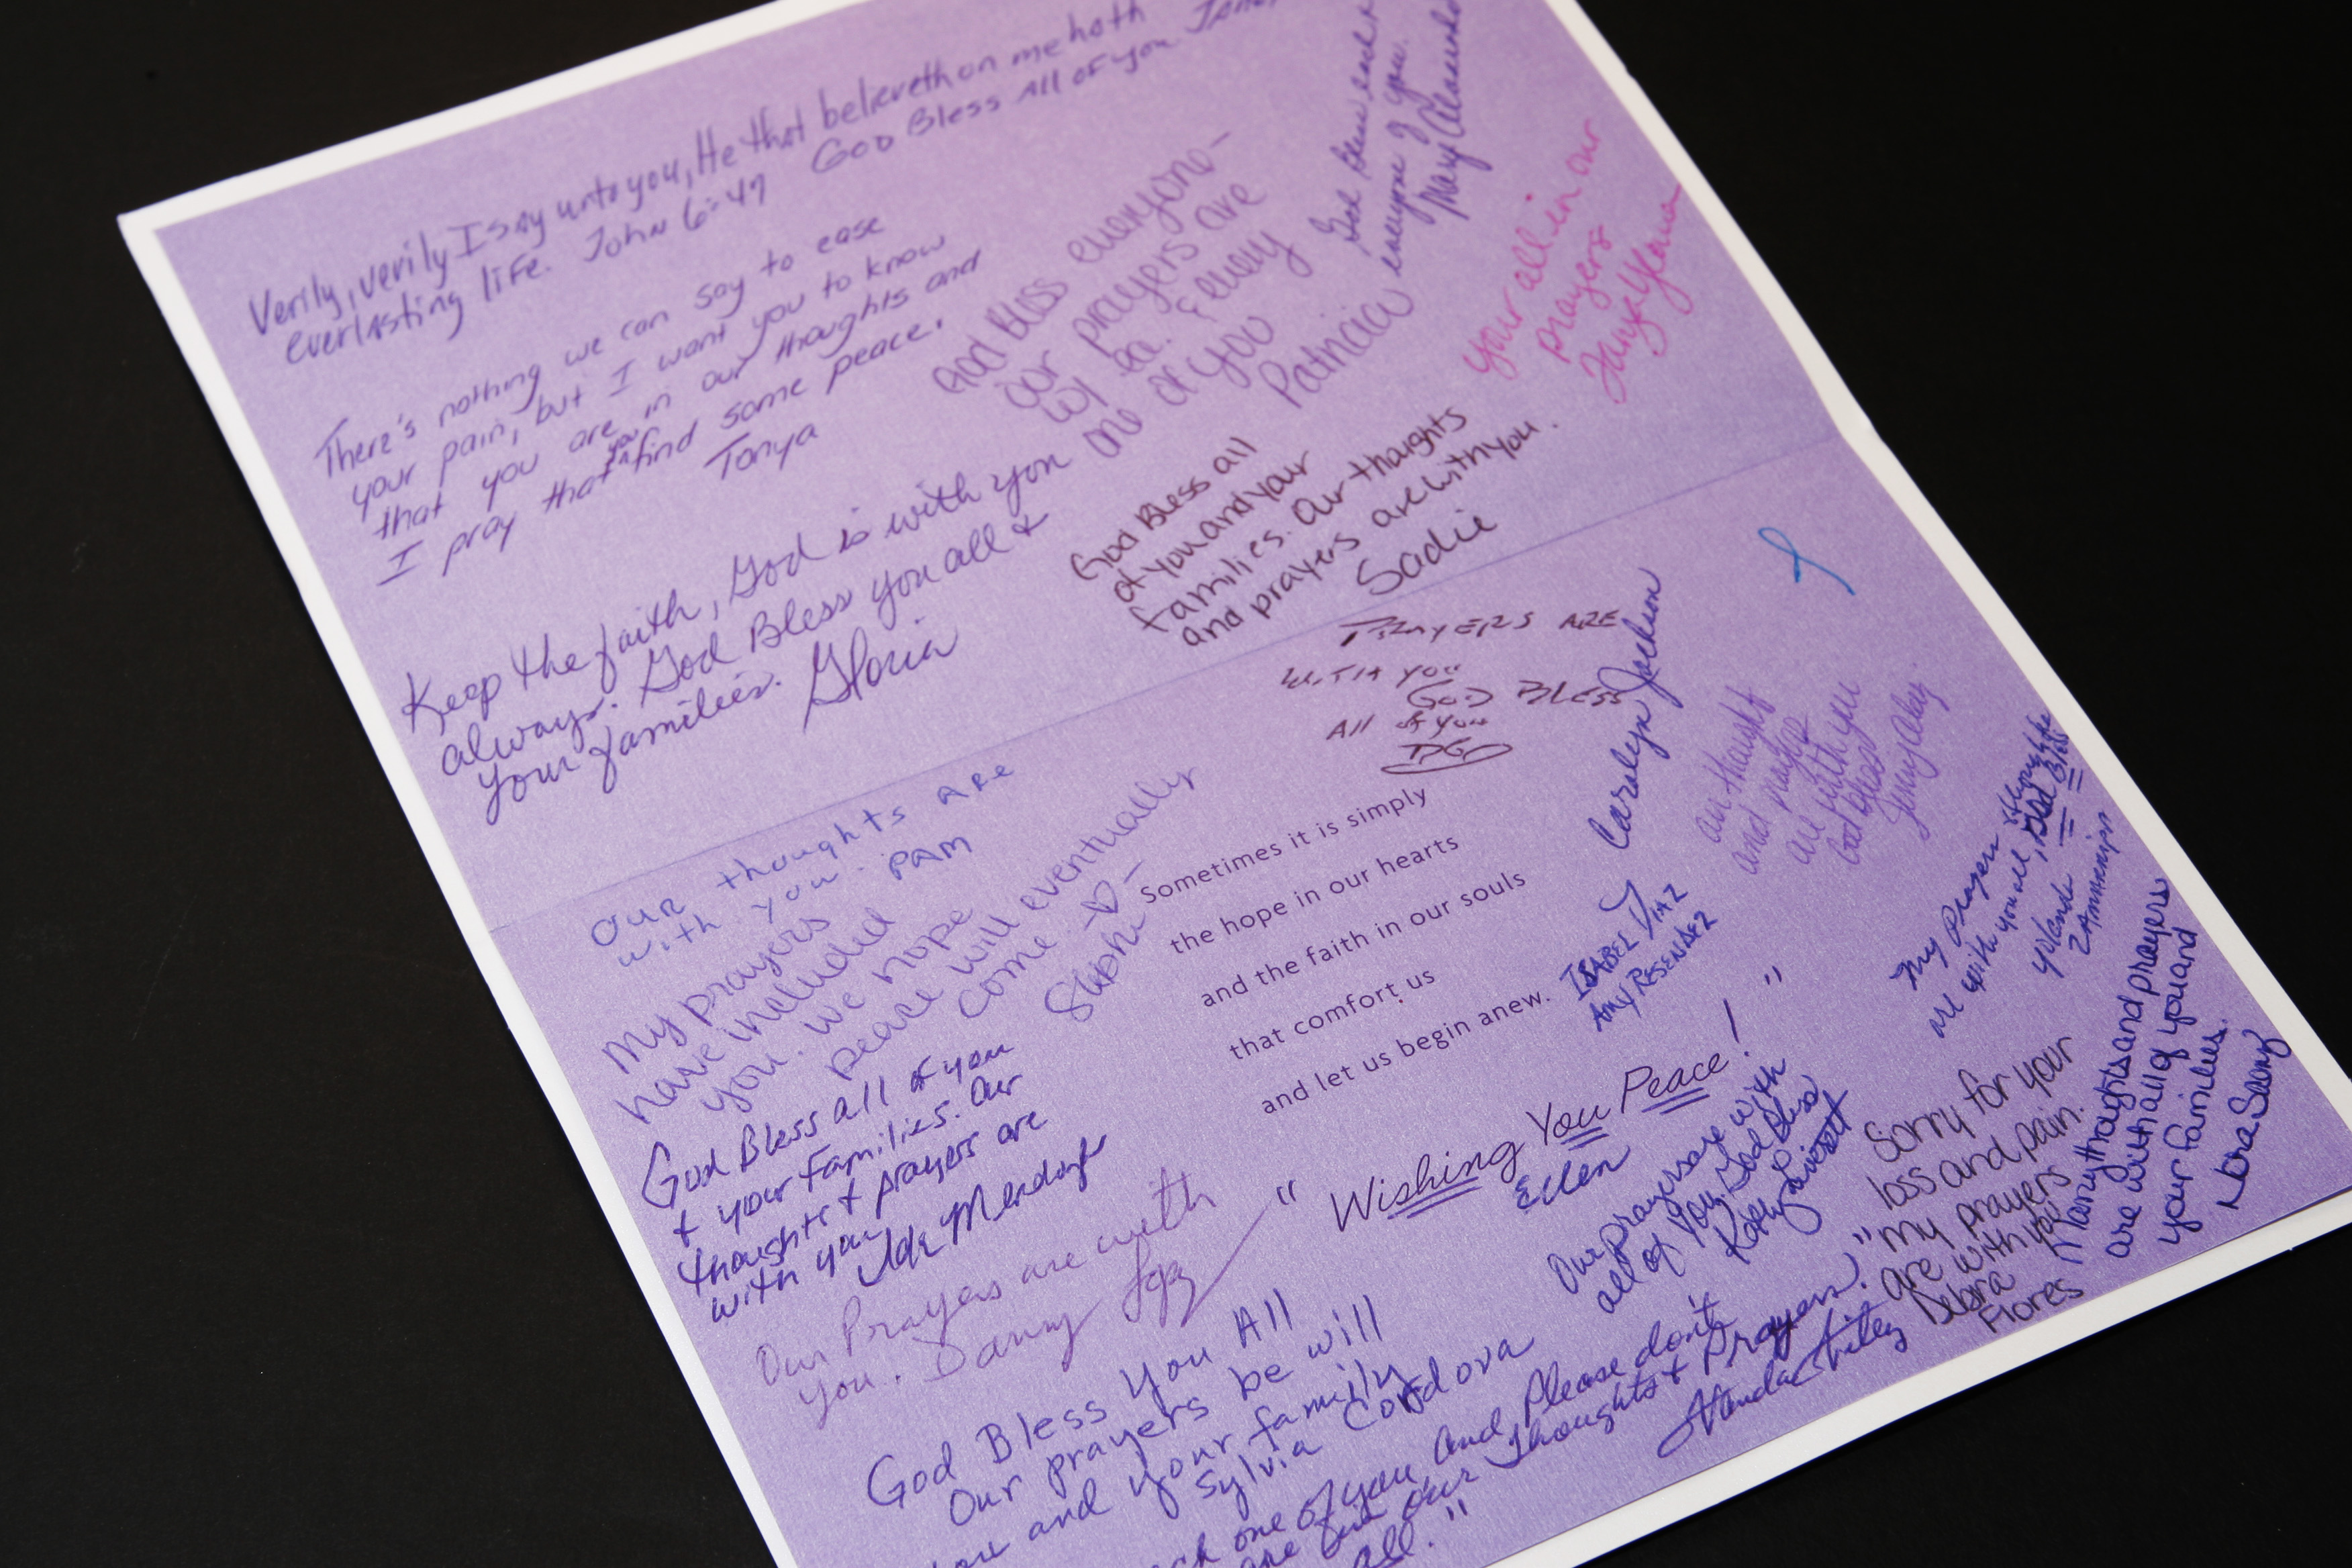 Verily, verily I say unto you, He that believeth on me hath
everlasting life. John 6:47 God Bless All of you
There's nothing we can say to ease
your pain, but I want you to know
that you are in our thoughts and
I pray that you find some peace.
Tonya
God Bless everyone-
our prayers are
w/ ea. & every
one of you
Patricia
God Bless each &
everyone of you.
Mary
your all in our
prayers
Keep the faith, God is with you
always. God Bless you all &
your families. Gloria
God Bless all
of you and your
families. Our thoughts
and prayers are with you.
Sadie
PRAYERS ARE
WITH YOU
GOD BLESS
All of you
Carolyn Jackson
our thought
and prayers
are with you
God bless
Jenny
Our thoughts are
with you. Pam
My prayers
have included
you. We hope
peace will eventually
come.
Sometimes it is simply
the hope in our hearts
and the faith in our souls
that comfort us
and let us begin anew.
ISABEL DIAZ
AMY RESENDEZ
My Prayers thoughts
are with you all, God Bless
Yolanda
God Bless all of you
& your families. Our
thoughts & prayers are
with you
"Wishing You Peace!"
Ellen
Our Prayers are with
you. Danny
Our prayers are with
all of You, God Bless
Sorry for your
loss and pain.
"My prayers
are with you"
Debra
Flores
Many thoughts and prayers
are with all of you and
your families.
Nora Saenz
God Bless You All
Our prayers be will
you and your family
Sylvia Cordova
one of you and Please don't
are in our thoughts & Prayers.
all."